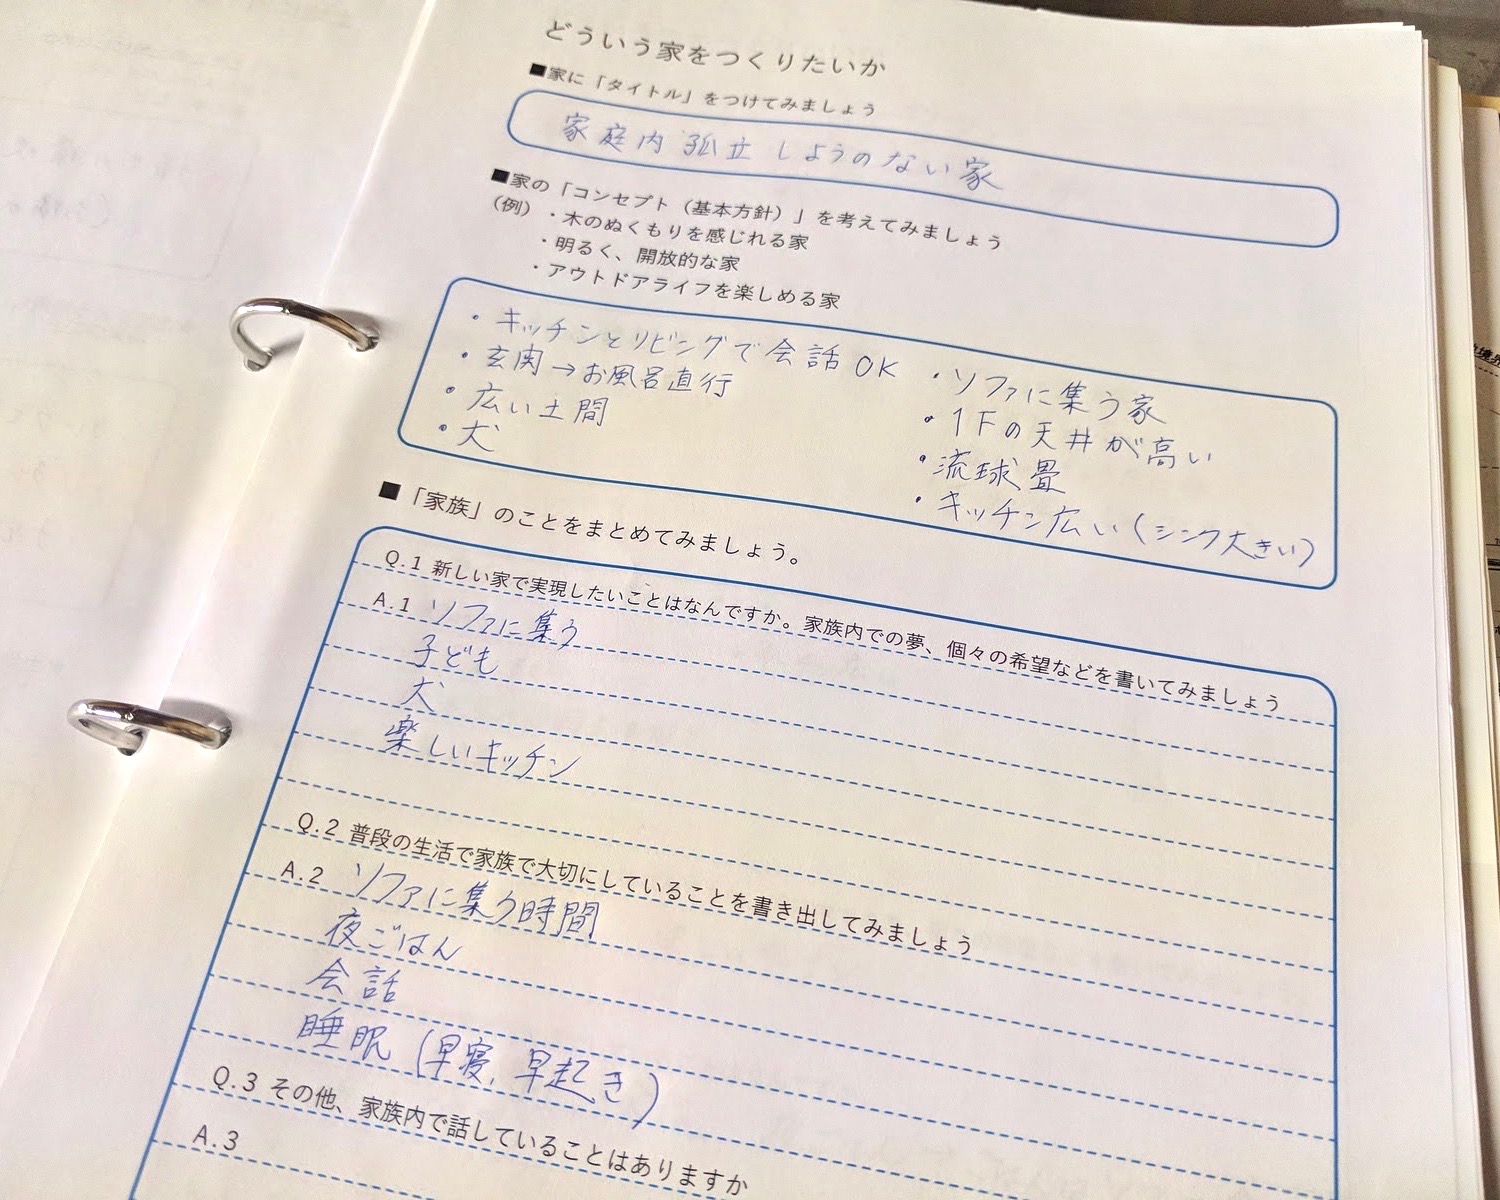 どういう家をつくりたいか
■家に「タイトル」をつけてみましょう
家庭内孤立しようのない家
■家の「コンセプト（基本方針）」を考えてみましょう
（例）・木のぬくもりを感じれる家
・明るく、開放的な家
・アウトドアライフを楽しめる家
・キッチンとリビングで会話OK
・玄関→お風呂直行
・広い土間
・犬
・ソファに集う家
・1Fの天井が高い
・流球畳
・キッチン広い(シンク大きい)
■「家族」のことをまとめてみましょう。
Q.1 新しい家で実現したいことはなんですか。家族内での夢、個々の希望などを書いてみましょう
A.1 ソファに集う
子ども
犬
楽しいキッチン
Q.2 普段の生活で家族で大切にしていることを書き出してみましょう
A.2 ソファに集う時間
夜ごはん
会話
睡眠(早寝、早起き)
Q.3 その他、家族内で話していることはありますか
A.3